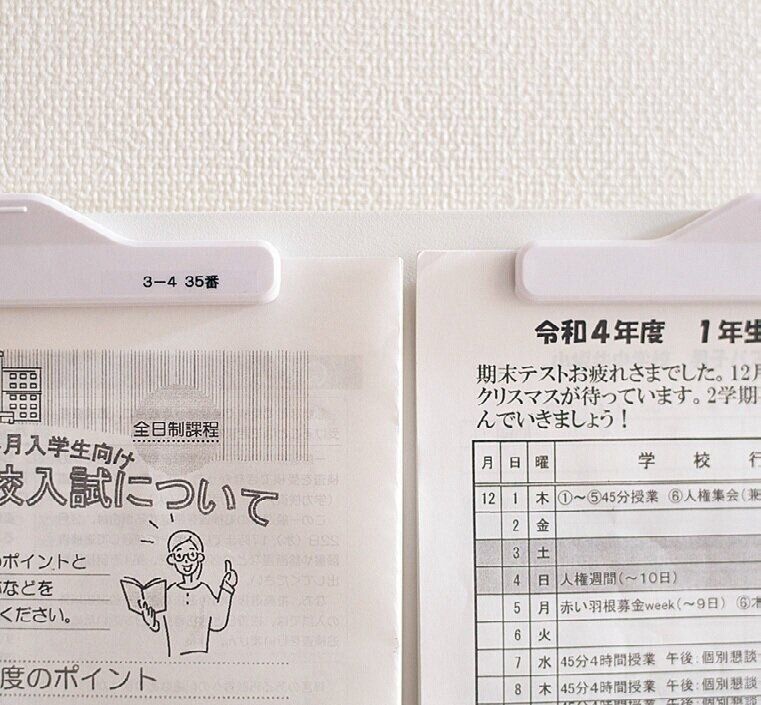 3-4 35番
全日制課程
月入学生向け
校入試について
のポイントと
などを
ください。
度のポイント
令和4年度 1年生
期末テストお疲れさまでした。12月
クリスマスが待っています。2学期
んでいきましょう！
月 日 曜 学 校 行
12 1 木 ①～⑤45分授業 ⑥人権集会(兼
2 金
3 土
4 日 人権週間(～10日)
5 月 赤い羽根募金week(～9日) ⑥
6 火
7 水 45分4時間授業 午後:個別懇談
8 木 45分4時間授業 午後:個別懇談